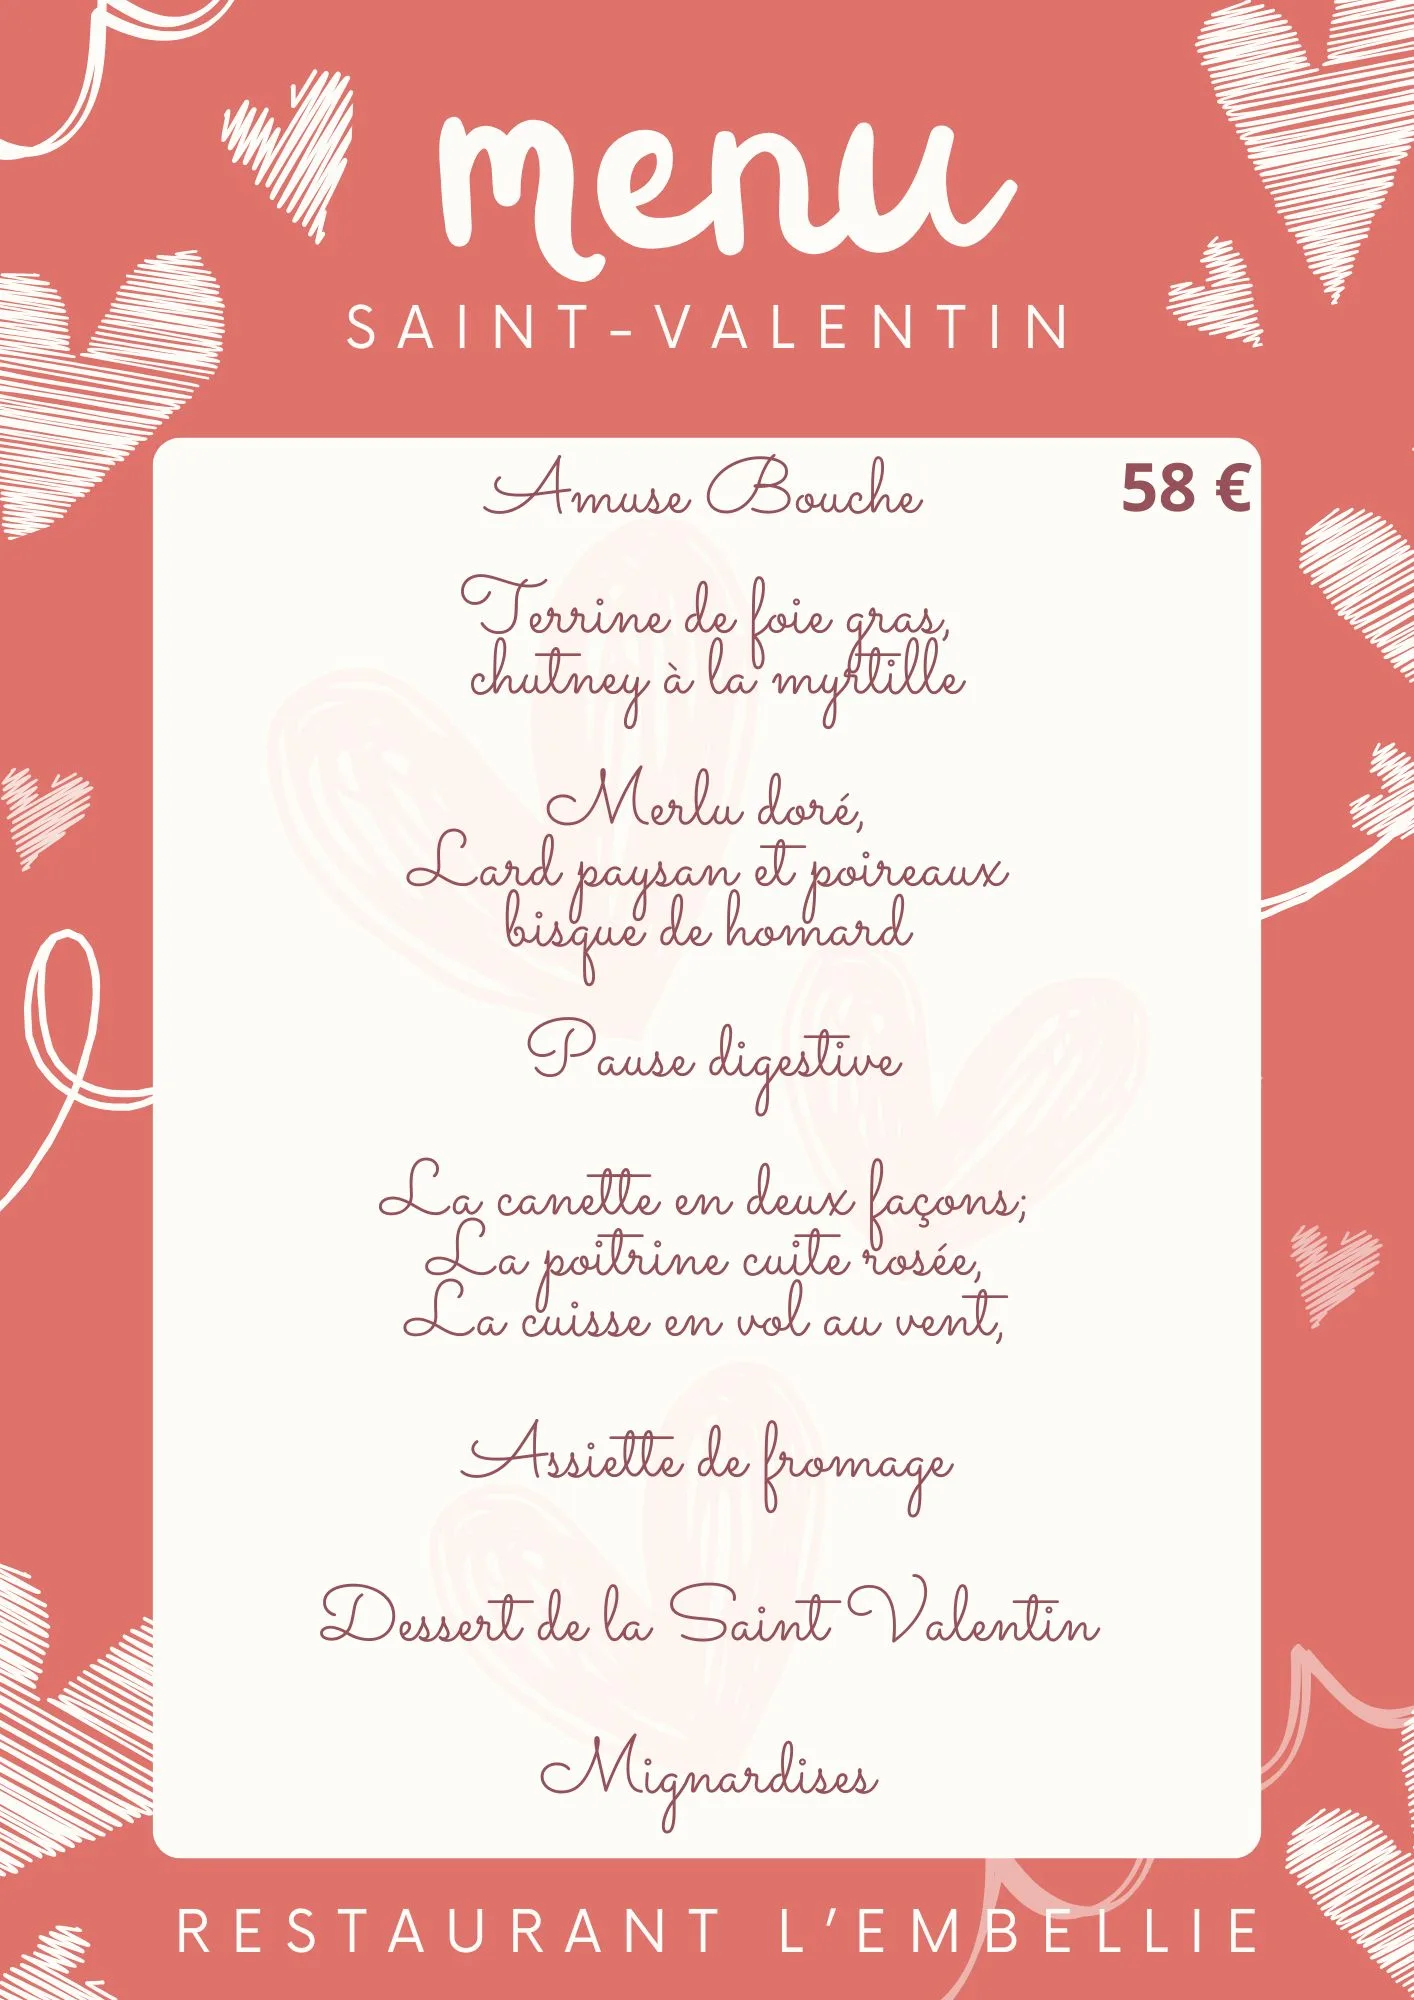 menu
SAINT-VALENTIN
Amuse Bouche 58 €
Terrine de foie gras,
chutney à la myrtille
Merlu doré,
Lard paysan et poireaux
bisque de homard
Pause digestive
La canette en deux façons;
La poitrine cuite rosée,
La cuisse en vol au vent,
Assiette de fromage
Dessert de la Saint Valentin
Mignardises
RESTAURANT L'EMBELLIE